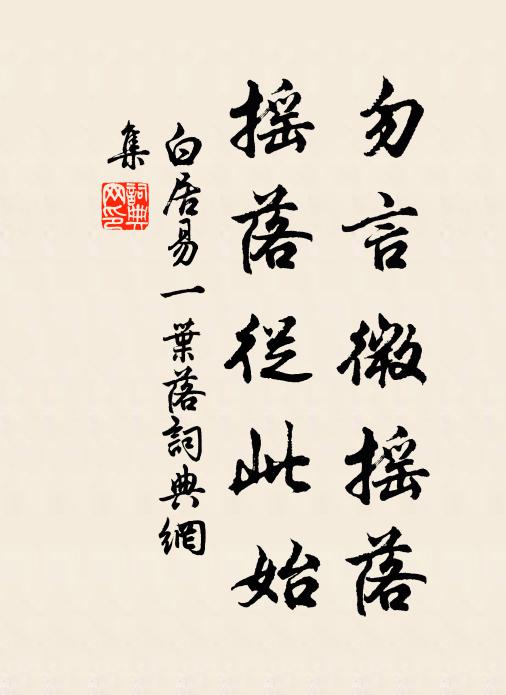 勿言微摇落
摇落從此始
白居易一葉落詞典網
集
詞典網印